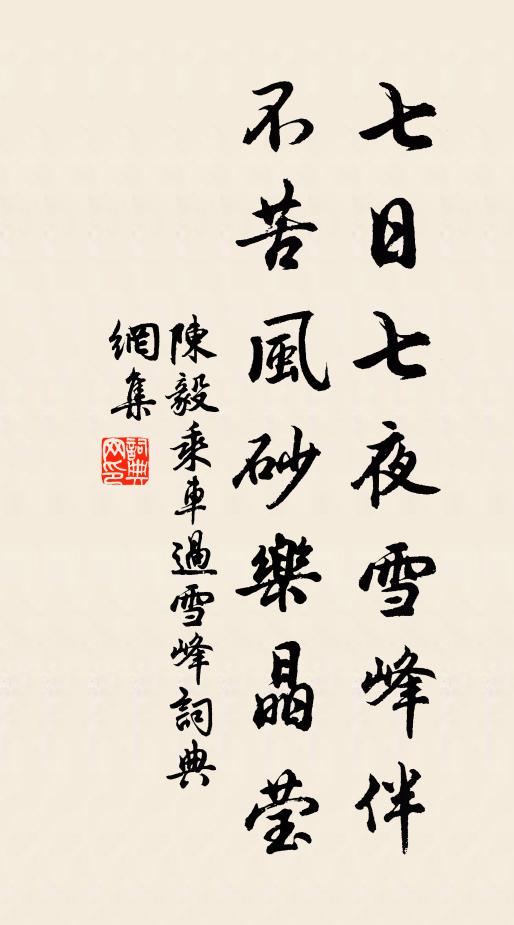 七日七夜雪峰伴
不苦風砂樂晶莹
陳毅乘車過雪峰詞典
網集
詞典網印